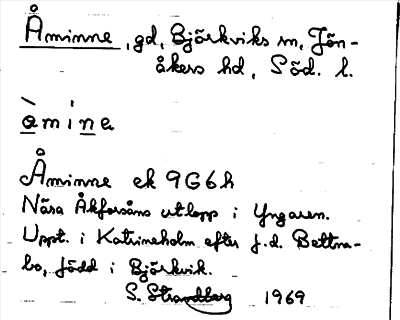 Åminne, gd, Björkviks sn, Jön-
åkers hd, Söd. l.
àmine
Åminne ek 9G6h
Nära Åkforsåns utlopp i Yngaren.
Uppt. i Katrineholm efter f.d. Bettna-
bo, född i Björkvik.
S. Strandberg 1969